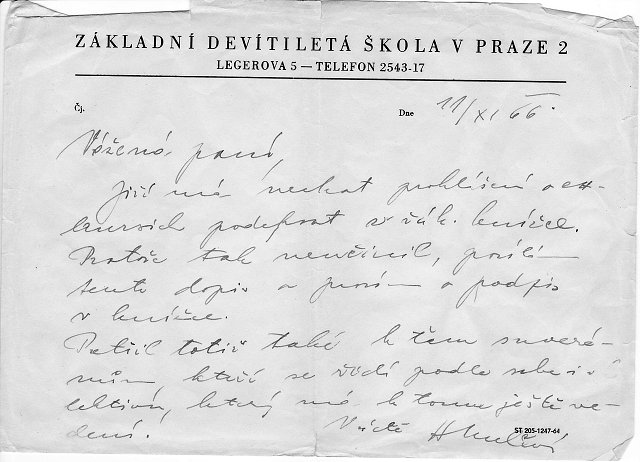 ZÁKLADNÍ DEVÍTILETÁ ŠKOLA V PRAZE 2
LEGEROVA 5 — TELEFON 2543-17
Čj. Dne 11/XI 66.
Vážená paní,
Jiří má nechat prohlášení o
podepsat v žák. knížce.
Protože tak neučinil, posílám
tento dopis a prosím o podpis
v knížce.
Patřil totiž také k těm suveré-
nům, kteří se řídí podle sebe i
lektivu, který má k tomu ještě ve-
dení.
ST 205-1247-64